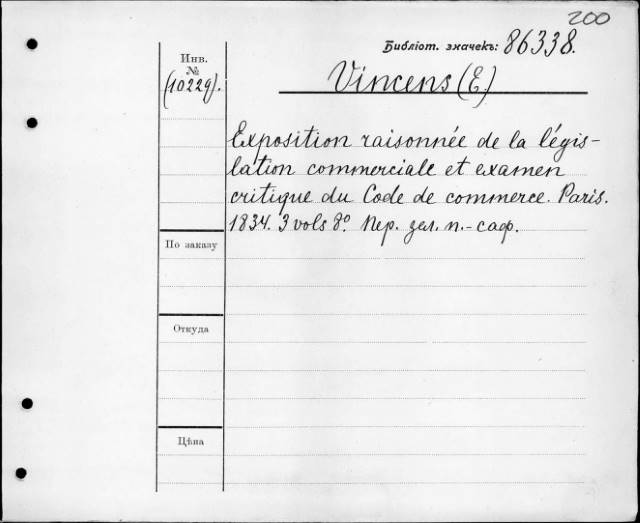 200
Библіот. значекъ: 86338.
Инв.
№
(10229).
Vincens (E.)
Exposition raisonnée de la légis-
lation commerciale et examen
critique du Code de commerce. Paris.
1834. 3 vols 8º. Пер. зел. п.-саф.
По заказу
Откуда
Цѣна